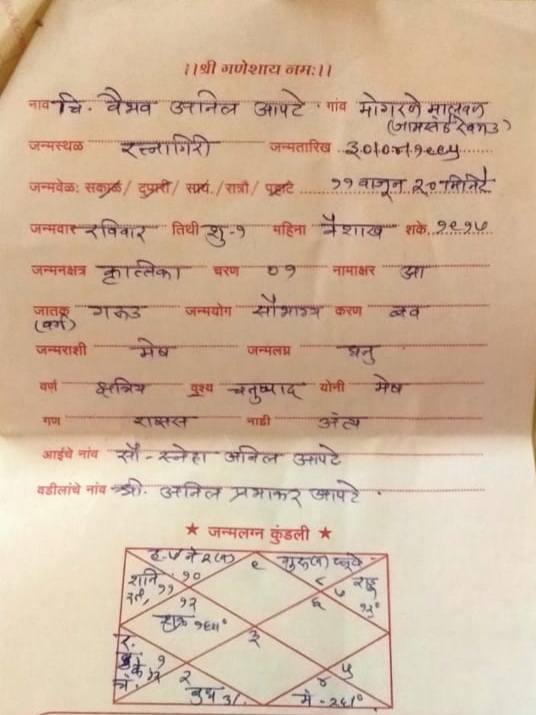 ।।श्री गणेशाय नमः।।
नाव चि. वैभव अनिल आपटे . गांव मोगरने मालवन
(जामसंडे देवगड)
जन्मस्थळ रत्नागिरी जन्मतारिख ३०।०४।१९९५
जन्मवेळ: सकाळ/ दुपारी/ सायं./ रात्रौ/ पहाटे ११ वाजून २० मिनिटे
जन्मवार रविवार तिथी शु-१ महिना वैशाख शके. १९१७
जन्मनक्षत्र कृत्तिका चरण ०१ नामाक्षर आ
जातक गरुड जन्मयोग सौभाग्य करण बव
(वर्ग)
जन्मराशी मेष जन्मलग्न धनु
वर्ण क्षत्रिय वश्य चतुष्पाद योनी मेष
गण राक्षस नाडी अंत्य
आईचे नांव सौ - स्नेहा अनिल आपटे
वडीलांचे नांव श्री. अनिल प्रभाकर आपटे .
★ जन्मलग्न कुंडली ★
९
शनि १० ८ राहू
११ ७
१२ ६
शुक्र
३
र.
१
के
चं. २ ४ ५
बुध मं -